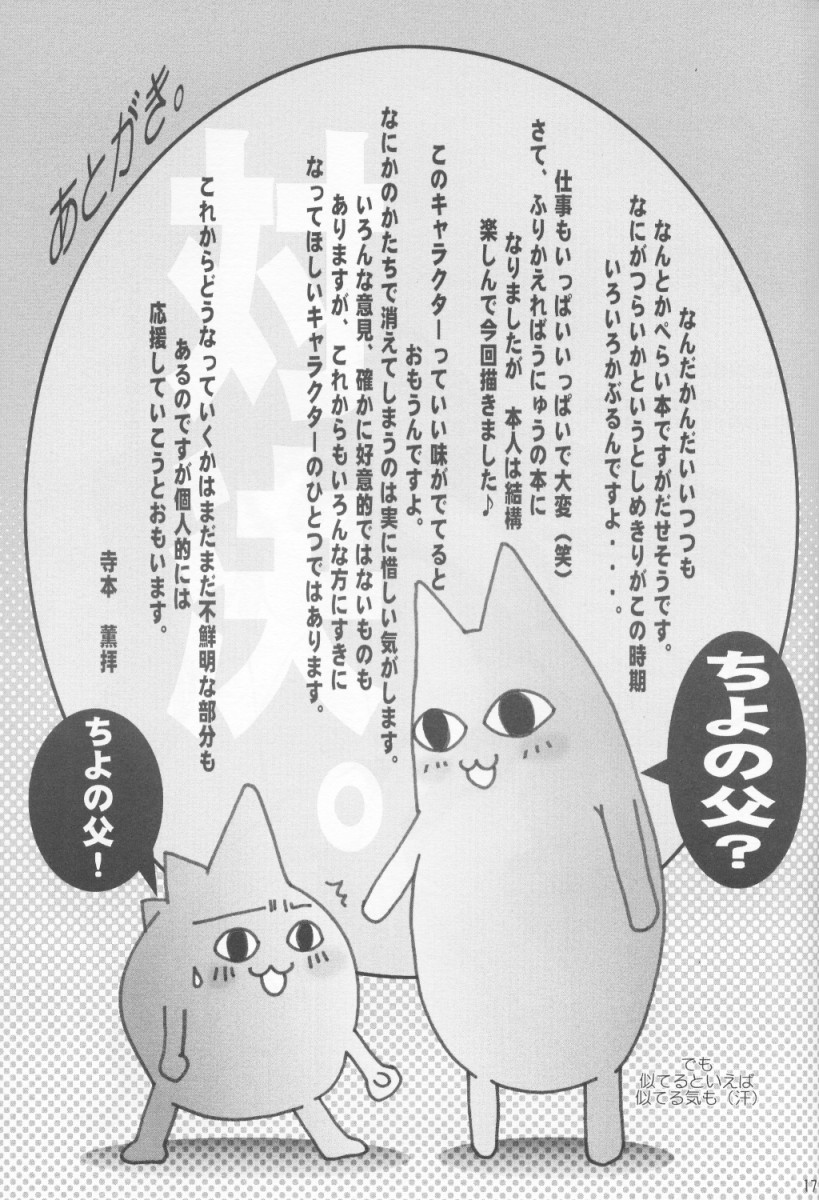 あとがき。
なんだかんだいいつつも
なんとかぺらい本ですがだせそうです。
なにがつらいかというとしめきりがこの時期
いろいろかぶるんですよ・・・。
仕事もいっぱいいっぱいで大変（笑）
さて、ふりかえればうにゅうの本に
なりましたが　本人は結構
楽しんで今回描きました♪
このキャラクターっていい味がでてると
おもうんですよ。
なにかのかたちで消えてしまうのは実に惜しい気がします。
いろんな意見、確かに好意的ではないものも
ありますが、これからもいろんな方にすきに
なってほしいキャラクターのひとつではあります。
これからどうなっていくかはまだまだ不鮮明な部分も
あるのですが個人的には
応援していこうとおもいます。
寺本　薫拝
対決。
ちよの父？
ちよの父！
でも
似てるといえば
似てる気も（汗）
17